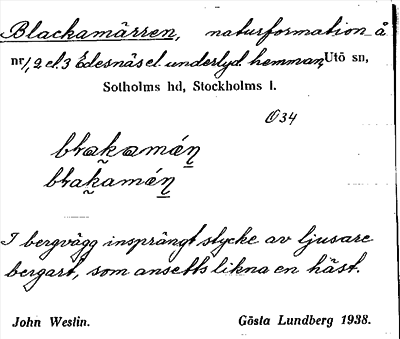 Blackamärren, naturformation å
nr 1, 2 el. 3 Edesnäs el. underlyd. hemman, Utö sn,
Sotholms hd, Stockholms l.
Ö 34
I bergvägg insprängt stycke av ljusare
bergart, som ansetts likna en häst.
John Westin. Gösta Lundberg 1938.